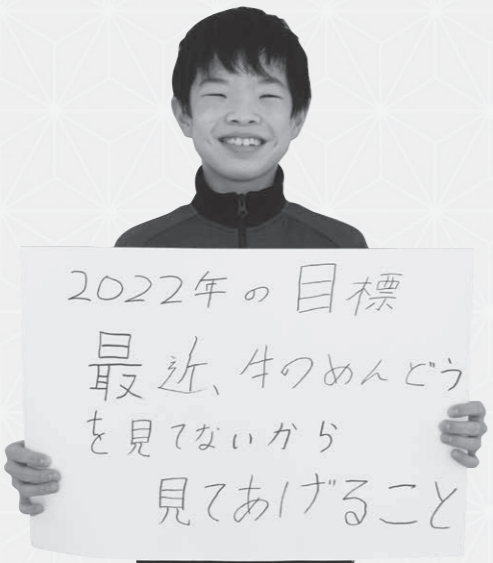 2022年の目標
最近、牛のめんどう
を見てないから
見てあげること